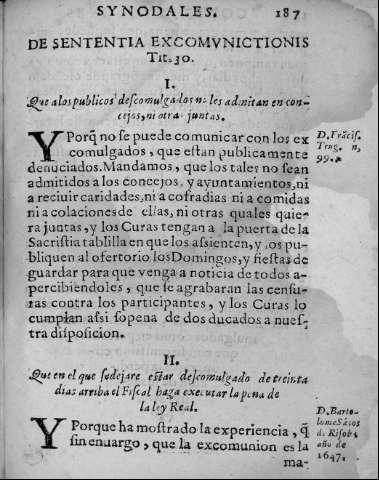 SYNODALES. 187
DE SENTENTIA EXCOMVNICTIONIS
Tit. 30.
I.
Que a los publicos descomulgados no les admitan en con-
cejos, ni otras juntas.
Y Porq̃ no se puede comunicar con los ex
comulgados, que estan publicamente
denuciados. Mandamos, que los tales no sean
admitidos a los concejos, y ayuntamientos, ni
a reciuir caridades, ni a cofradias ni a comidas
ni a colaciones de ellas, ni otras quales quie-
ra juntas, y los Curas tengan a la puerta de la
Sacristia tablilla en que los assienten, y los pu-
bliquen al ofertorio los Domingos, y fiestas de
guardar para que venga a noticia de todos a-
percibiendoles, que se agrabaran las censu-
ras contra los participantes, y los Curas lo
cumplan assi sopena de dos ducados a nues-
tra disposicion.
D. Frãcis.
Trug. n,
99.
II.
Que en el que se dejare estar descomulgado de treinta
dias arriba el Fiscal haga executar la pena de
la ley Real.
Y Porque ha mostrado la experiencia, q̃
sin enuargo, que la excomunion es la
ma-
D. Barto-
lome Sãtos
d. Risoba
año de
1647.